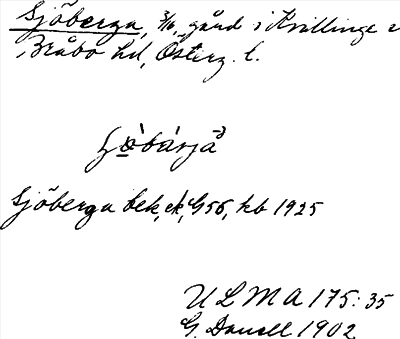 Sjöberga, 3/16, gård i Kvillinge
Bråbo hd, Österg. l.
Sjöberga bek, ek, G56, kb 1925
U L M A 175:35
G. Danell 1902